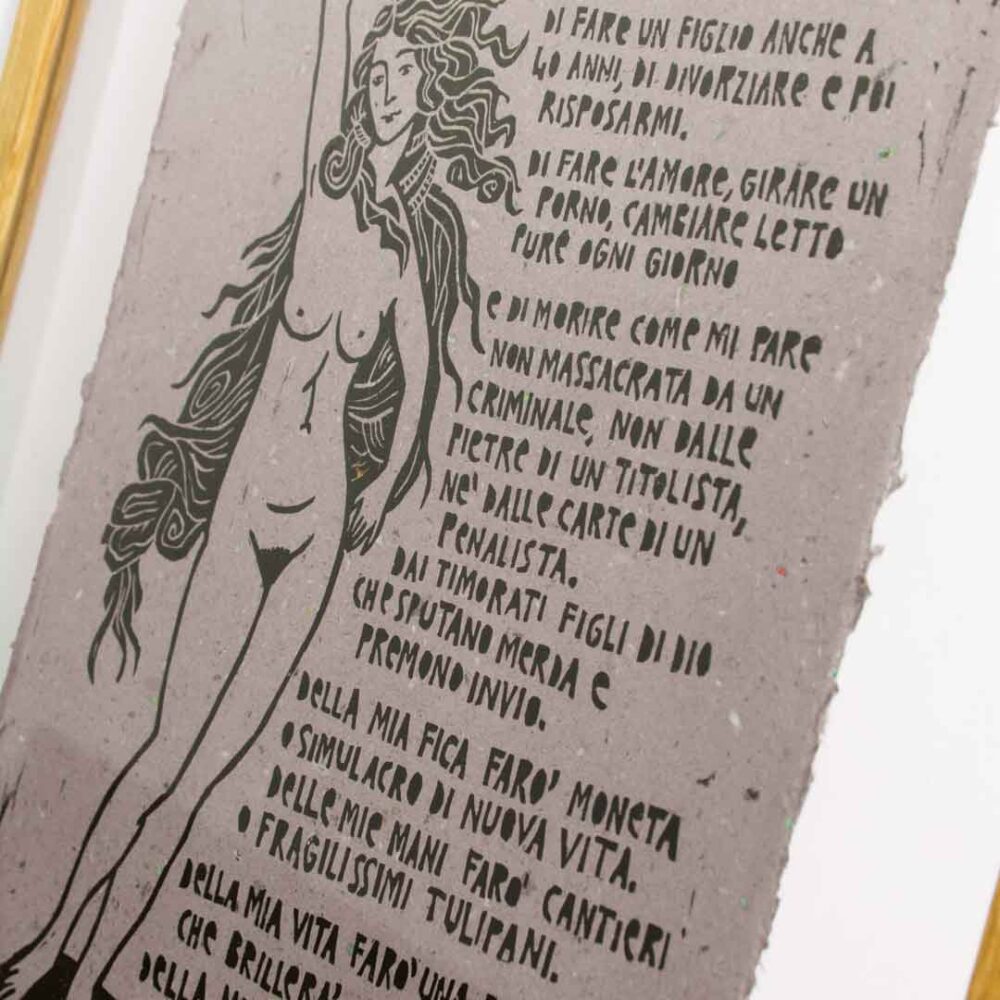 DI FARE UN FIGLIO ANCHE A
40 ANNI, DI DIVORZIARE E POI
RISPOSARMI.
DI FARE L'AMORE, GIRARE UN
PORNO, CAMBIARE LETTO
PURE OGNI GIORNO
E DI MORIRE COME MI PARE
NON MASSACRATA DA UN
CRIMINALE, NON DALLE
PIETRE DI UN TITOLISTA,
NE' DALLE CARTE DI UN
PENALISTA.
DAI TIMORATI FIGLI DI DIO
CHE SPUTANO MERDA E
PREMONO INVIO.
DELLA MIA FICA FARO' MONETA
O SIMULACRO DI NUOVA VITA.
DELLE MIE MANI FARO' CANTIERI
O FRAGILISSIMI TULIPANI.
DELLA MIA VITA FARO' UNA
CHE BRILLERA'
DELLA